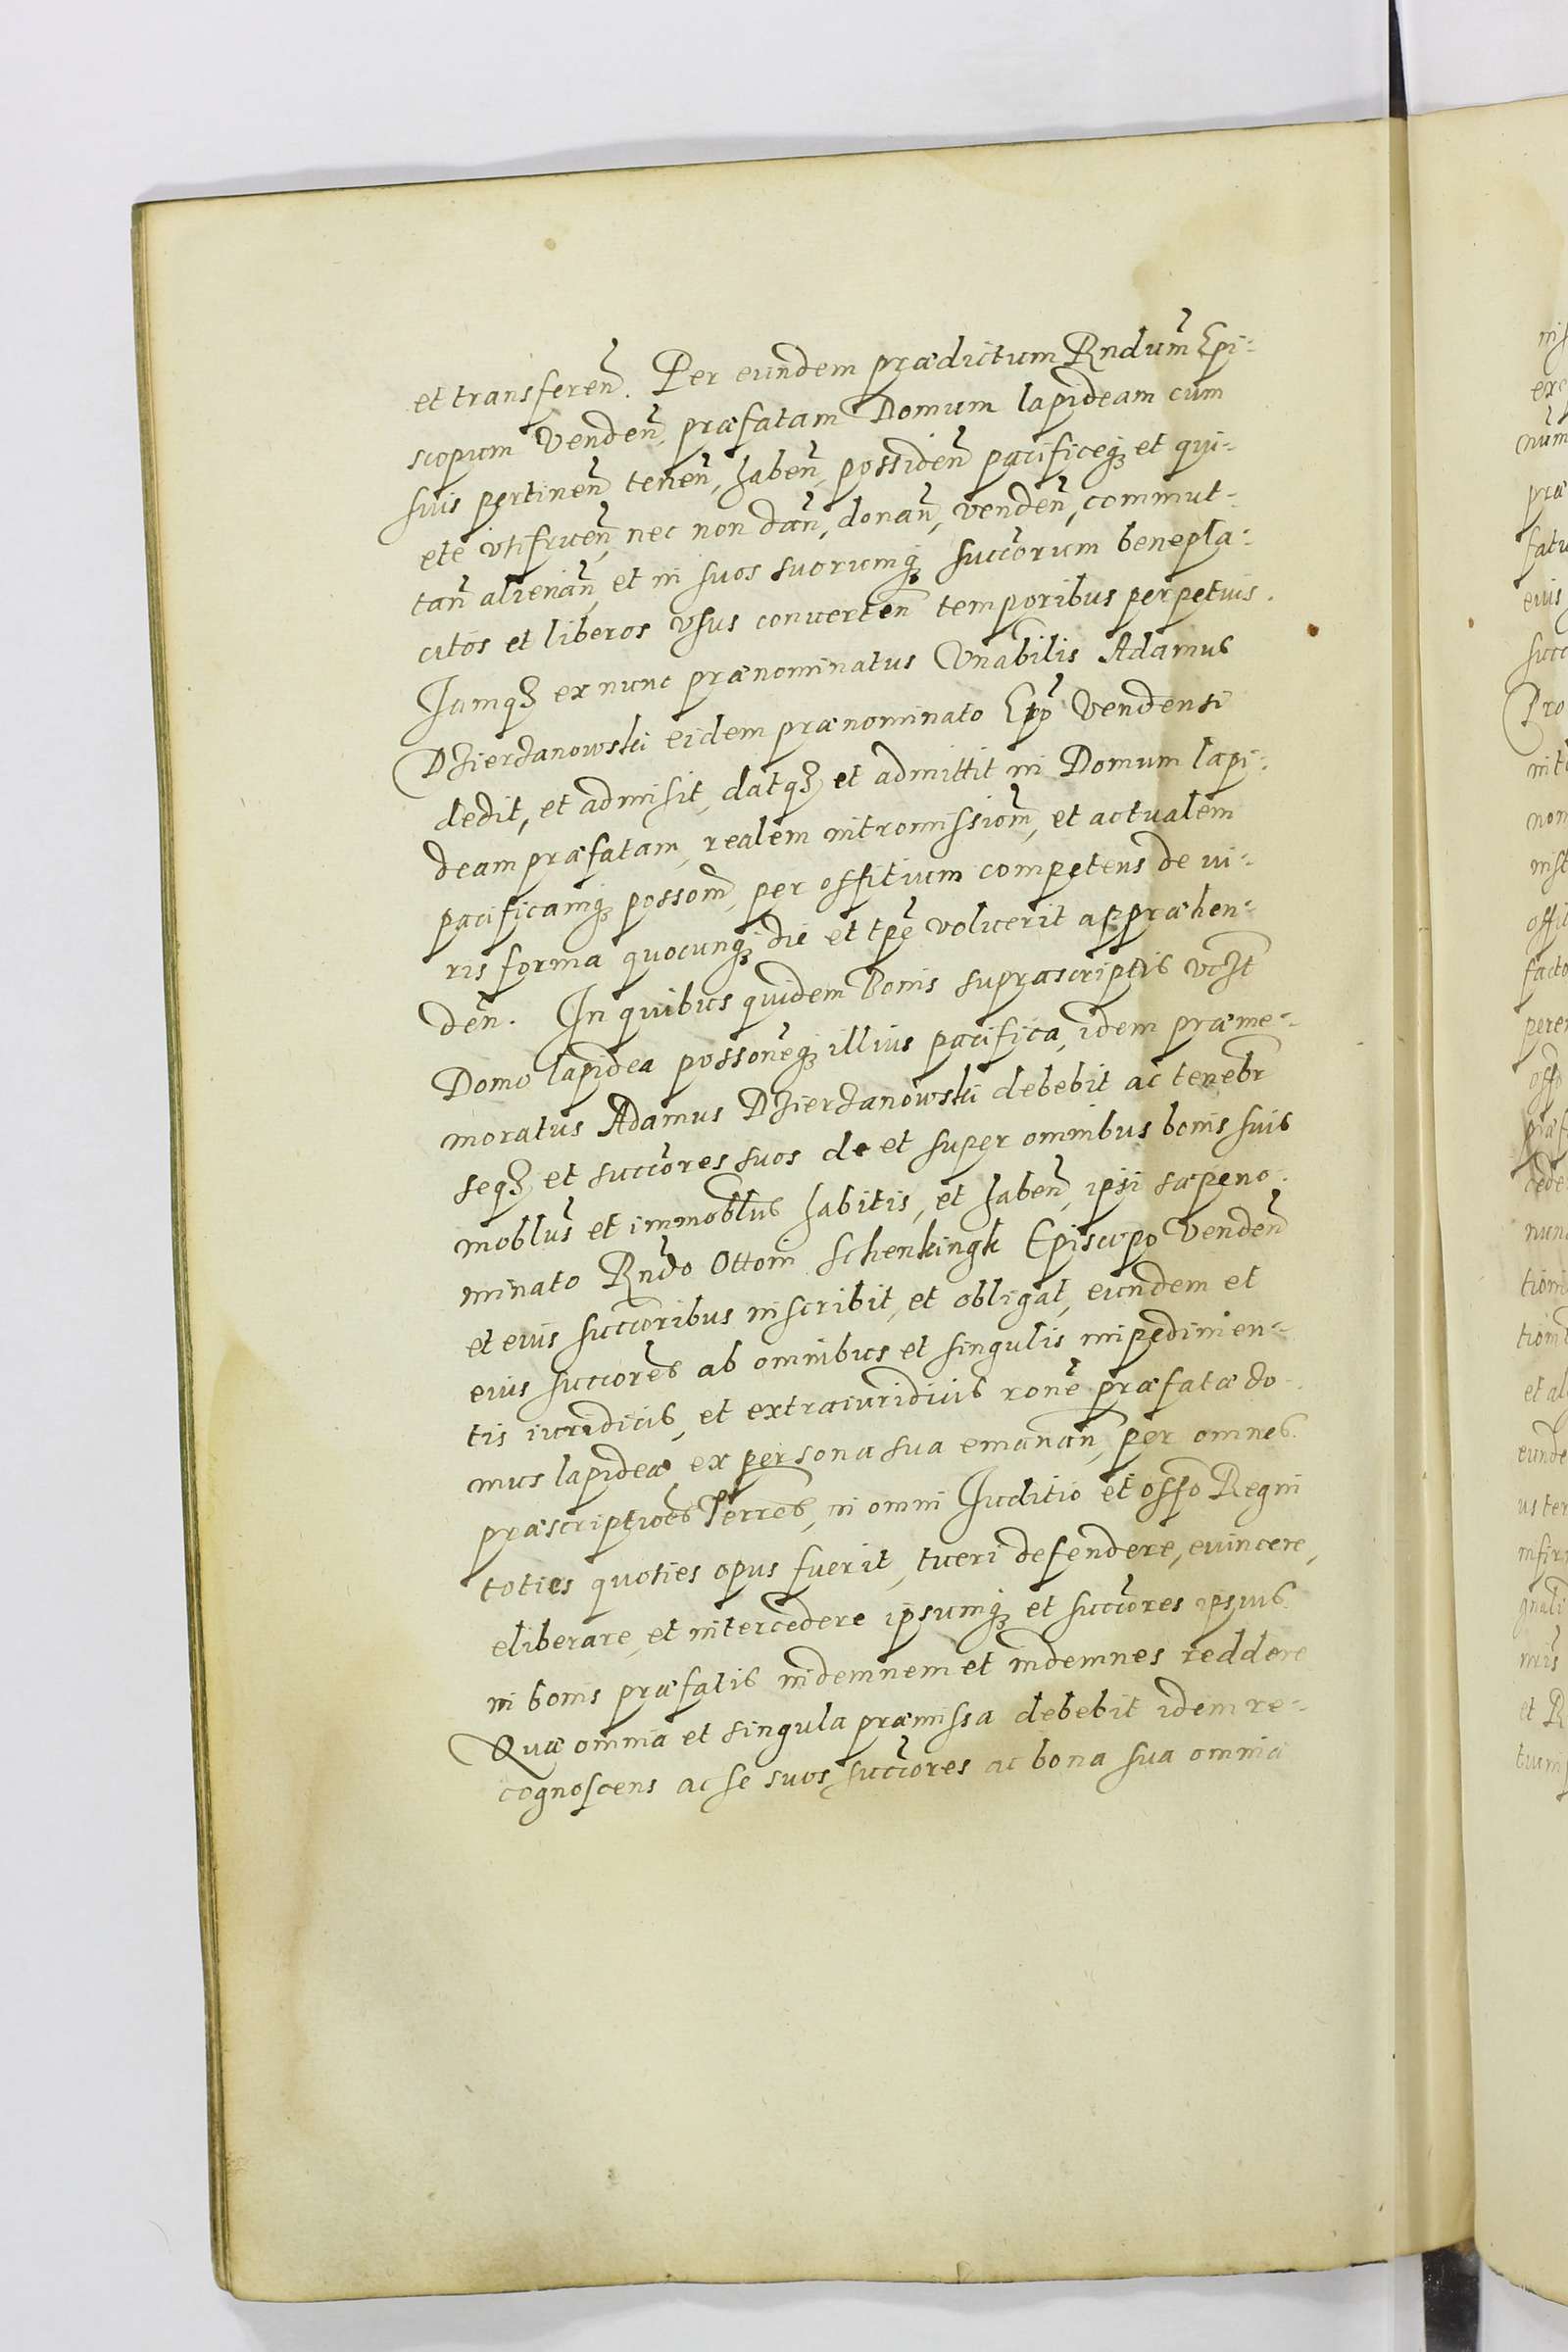 et transferen̄. Per eundem prædictum Rndum̄ Epi-
scopum Venden̄, præfatam Domum lapideam cum
suis pertinen̄ tenen̄, haben̄, possiden̄ pacificeq; et qui-
ete vtifruen̄, nec non dan̄, donan̄, venden̄, commut-
tan̄ alienan̄, et in suos suorumq; succōrum benepla-
citos et liberos vsus conuerten̄ temporibus perpetuis.
Iamq; ex nunc prænominatus Vnabilis Adamus
Dzierzanowski eidem prænominato Epō Vendensi
dedit, et admisit, datq; et admittit in Domum lapi-
deam præfatam, realem intromissiom̄, et actualem
pacificamq; possom̄, per offitium competens de iu-
ris forma quocunq; die et tpē voluerit appræhen-
den̄. In quibus quidem Bonis suprascriptis vcz̄t
Domo lapidea possonēq; illius pacifica, idem præme-
moratus Adamus Dzierzanowski debebit ac tenebr̄
seq; et succōres suos de et super omnibus bonis suis
moblus̄ et immoblus̄ habitis, et haben̄, ipsi sæpeno-
minato Rndo Ottoni Schenkingk Episcopo Venden̄
et eius succōribus inscribit, et obligat, eundem et
eius succōres ab omnibus et singulis impedimen-
tis iuridicis, et extraiuridicis ronē præfatæ do-
mus lapideæ ex persona sua emanan̄, per omnes
præscriptioēs Terrēs, in omni Iuditio et offo Regni
toties quoties opus fuerit, tueri defendere, euincere,
eliberare, et intercedere ipsumq; et succōres ipsius
in bonis præfatis indemnem et indemnes reddere
Quæ omnia et singula præmissa debebit idem re-
cognoscens ac se suos succōres ac bona sua omnia